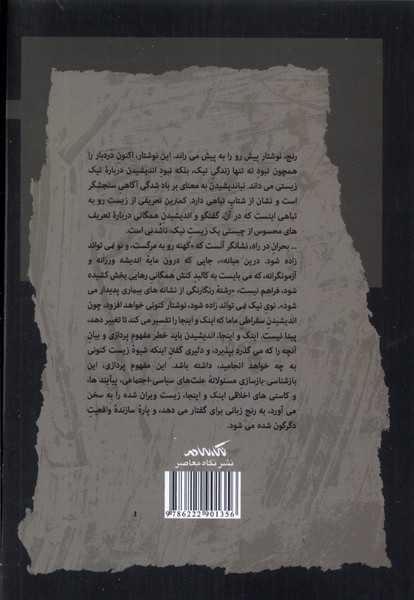 رنج، نوشتار پیش رو را به پیش می راند. این نوشتار، اکنونِ دردبار را
همچون نبود نه تنها زندگیِ نیک، بلکه نبود اندیشیدن دربارهٔ نیک
زیستی می داند. نیاندیشیدن به معنای بر باد شدگی آگاهی سنجشگر
و نشان از شتاب تباهی دارد. کمترین تعریفی از زیست رو به
تباهی اینست که در آن، گفتگو و اندیشیدن همگانی دربارهٔ تعریف
های محسوس از چیستی یک زیست نیک، ناشُدنی است.
... بحران در راه، نشانگر آنست که «کهنه رو به مرگست، و نو نمی تواند
زاده شود. درین میانه»، جایی که درون مایهٔ اندیشه ورزانه و
آزمونگرانه، که می بایست به کالبد کنش همگانی رهایی بخش کشیده
شود، فراهم نیست، «رشتهٔ رنگارنگی از نشانه های بیماری پدیدار می
شود». نوی نیک نمی تواند زاده شود، نوشتار کنونی خواهد افزود، چون
اندیشیدن سقراطی ماما که اینک و اینجا را تفسیر می کند تا تغییر دهد،
پیدا نیست. اینک و اینجا، اندیشیدن باید خطر مفهوم پردازی و بیانِ
آنچه را که می گذرد بپذیرد، و دلیری گفتن اینکه شیوهٔ زیست کنونی
به چه خواهد انجامید، داشته باشد. این مفهوم پردازی، این
بازشناسی-بازسازی مسئولانهٔ علت‌های سیاسی-اجتماعی، پیآیند ها،
و کاستی های اخلاقی اینک و اینجا، زیست ویران شده را به سخن
می آورد، به رنج زبانی برای گفتار می دهد، و پارهٔ سازندهٔ واقعیتِ
دگرگون شده می شود.
نشر نگاه معاصر
9 786222 901356